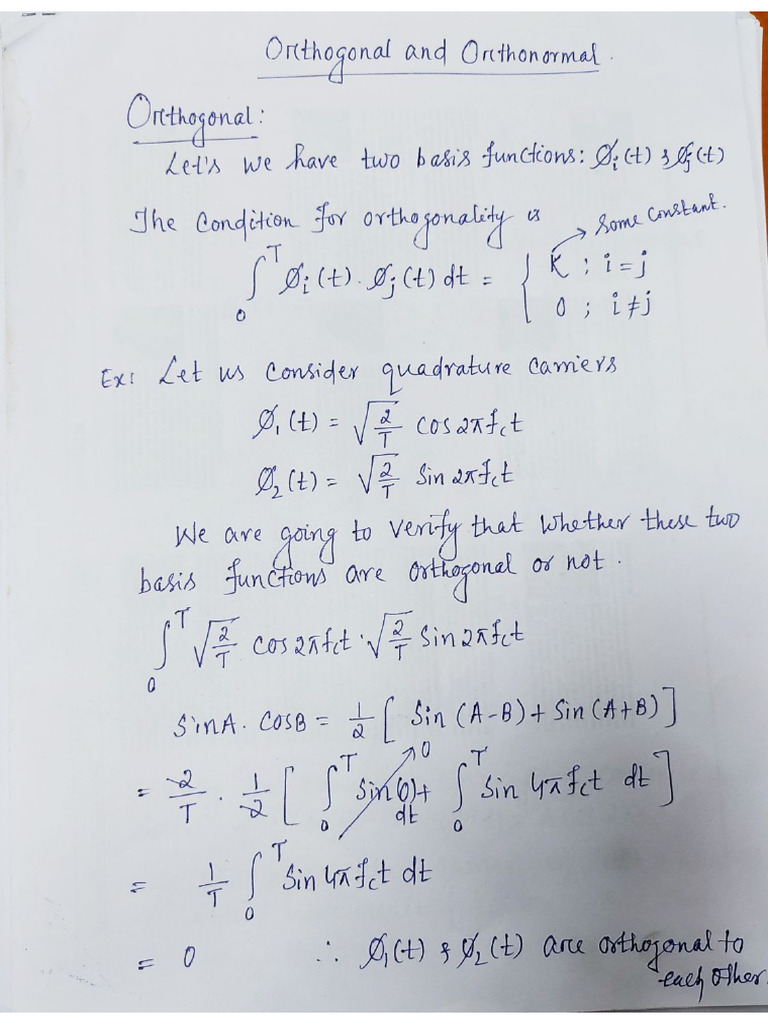 Orthogonal and Orthonormal.
Orthogonal:
Let's we have two basis functions: Ø_i(t) & Ø_j(t)
The condition for orthogonality is
→ some constant.
∫_0^T Ø_i(t) . Ø_j(t) dt = { K ; i=j
0 ; i≠j
Ex: Let us consider quadrature carriers
Ø_1(t) = √(2/T) cos2πf_ct
Ø_2(t) = √(2/T) Sin 2πf_ct
We are going to verify that whether these two
basis functions are orthogonal or not.
∫_0^T √(2/T) cos2πf_ct . √(2/T) Sin2πf_ct
SinA. cosB = 1/2 [ Sin (A-B) + Sin (A+B) ]
= 2/T . 1/2 [ ∫_0^T Sin(0) dt → 0 + ∫_0^T Sin 4πf_ct dt ]
= 1/T ∫_0^T Sin4πf_ct dt
= 0 ∴ Ø_1(t) & Ø_2(t) are orthogonal to
each other.